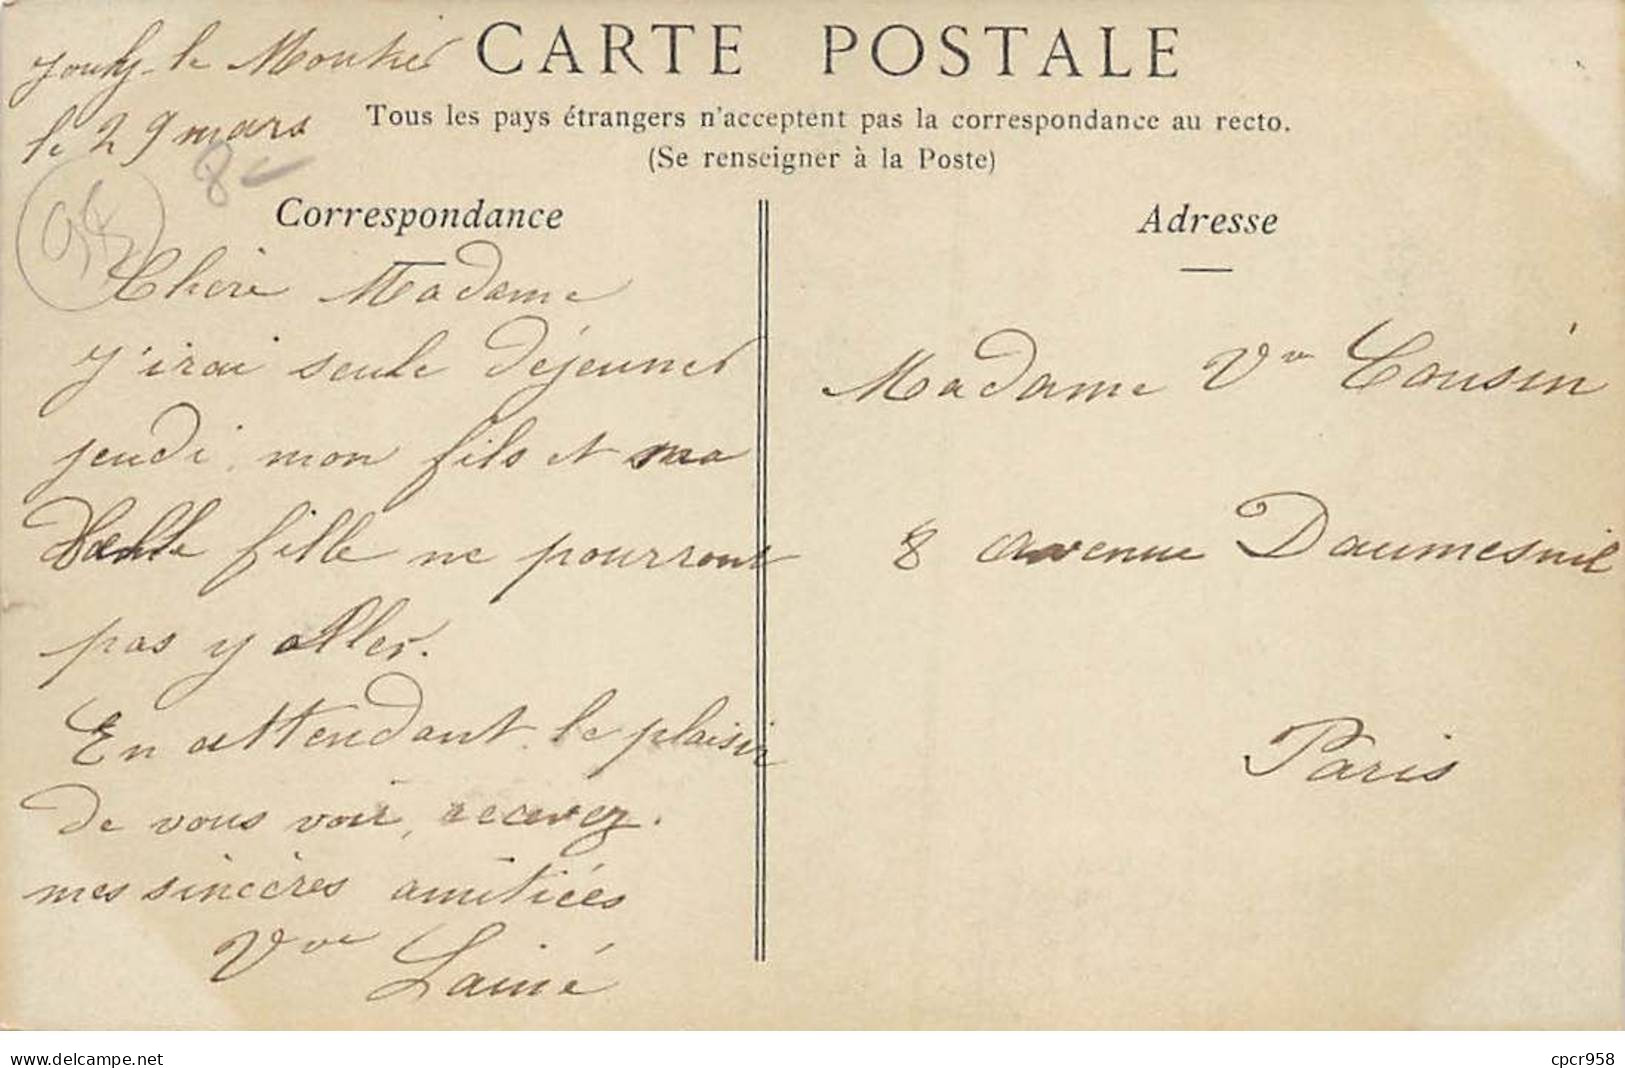 Jouy-le Moutier
le 29 mars
CARTE POSTALE
Tous les pays étrangers n'acceptent pas la correspondance au recto.
(Se renseigner à la Poste)
8
95
Correspondance
Chère Madame
J'irai seule déjeuner
jeudi, mon fils et ma
belle fille ne pourront
pas y aller.
En attendant le plaisir
de vous voir, recevez.
mes sincères amitiées
Vve Lainé
Adresse
Madame Vve Cousin
8 avenue Daumesnil
Paris
www.delcampe.net
cpcr958